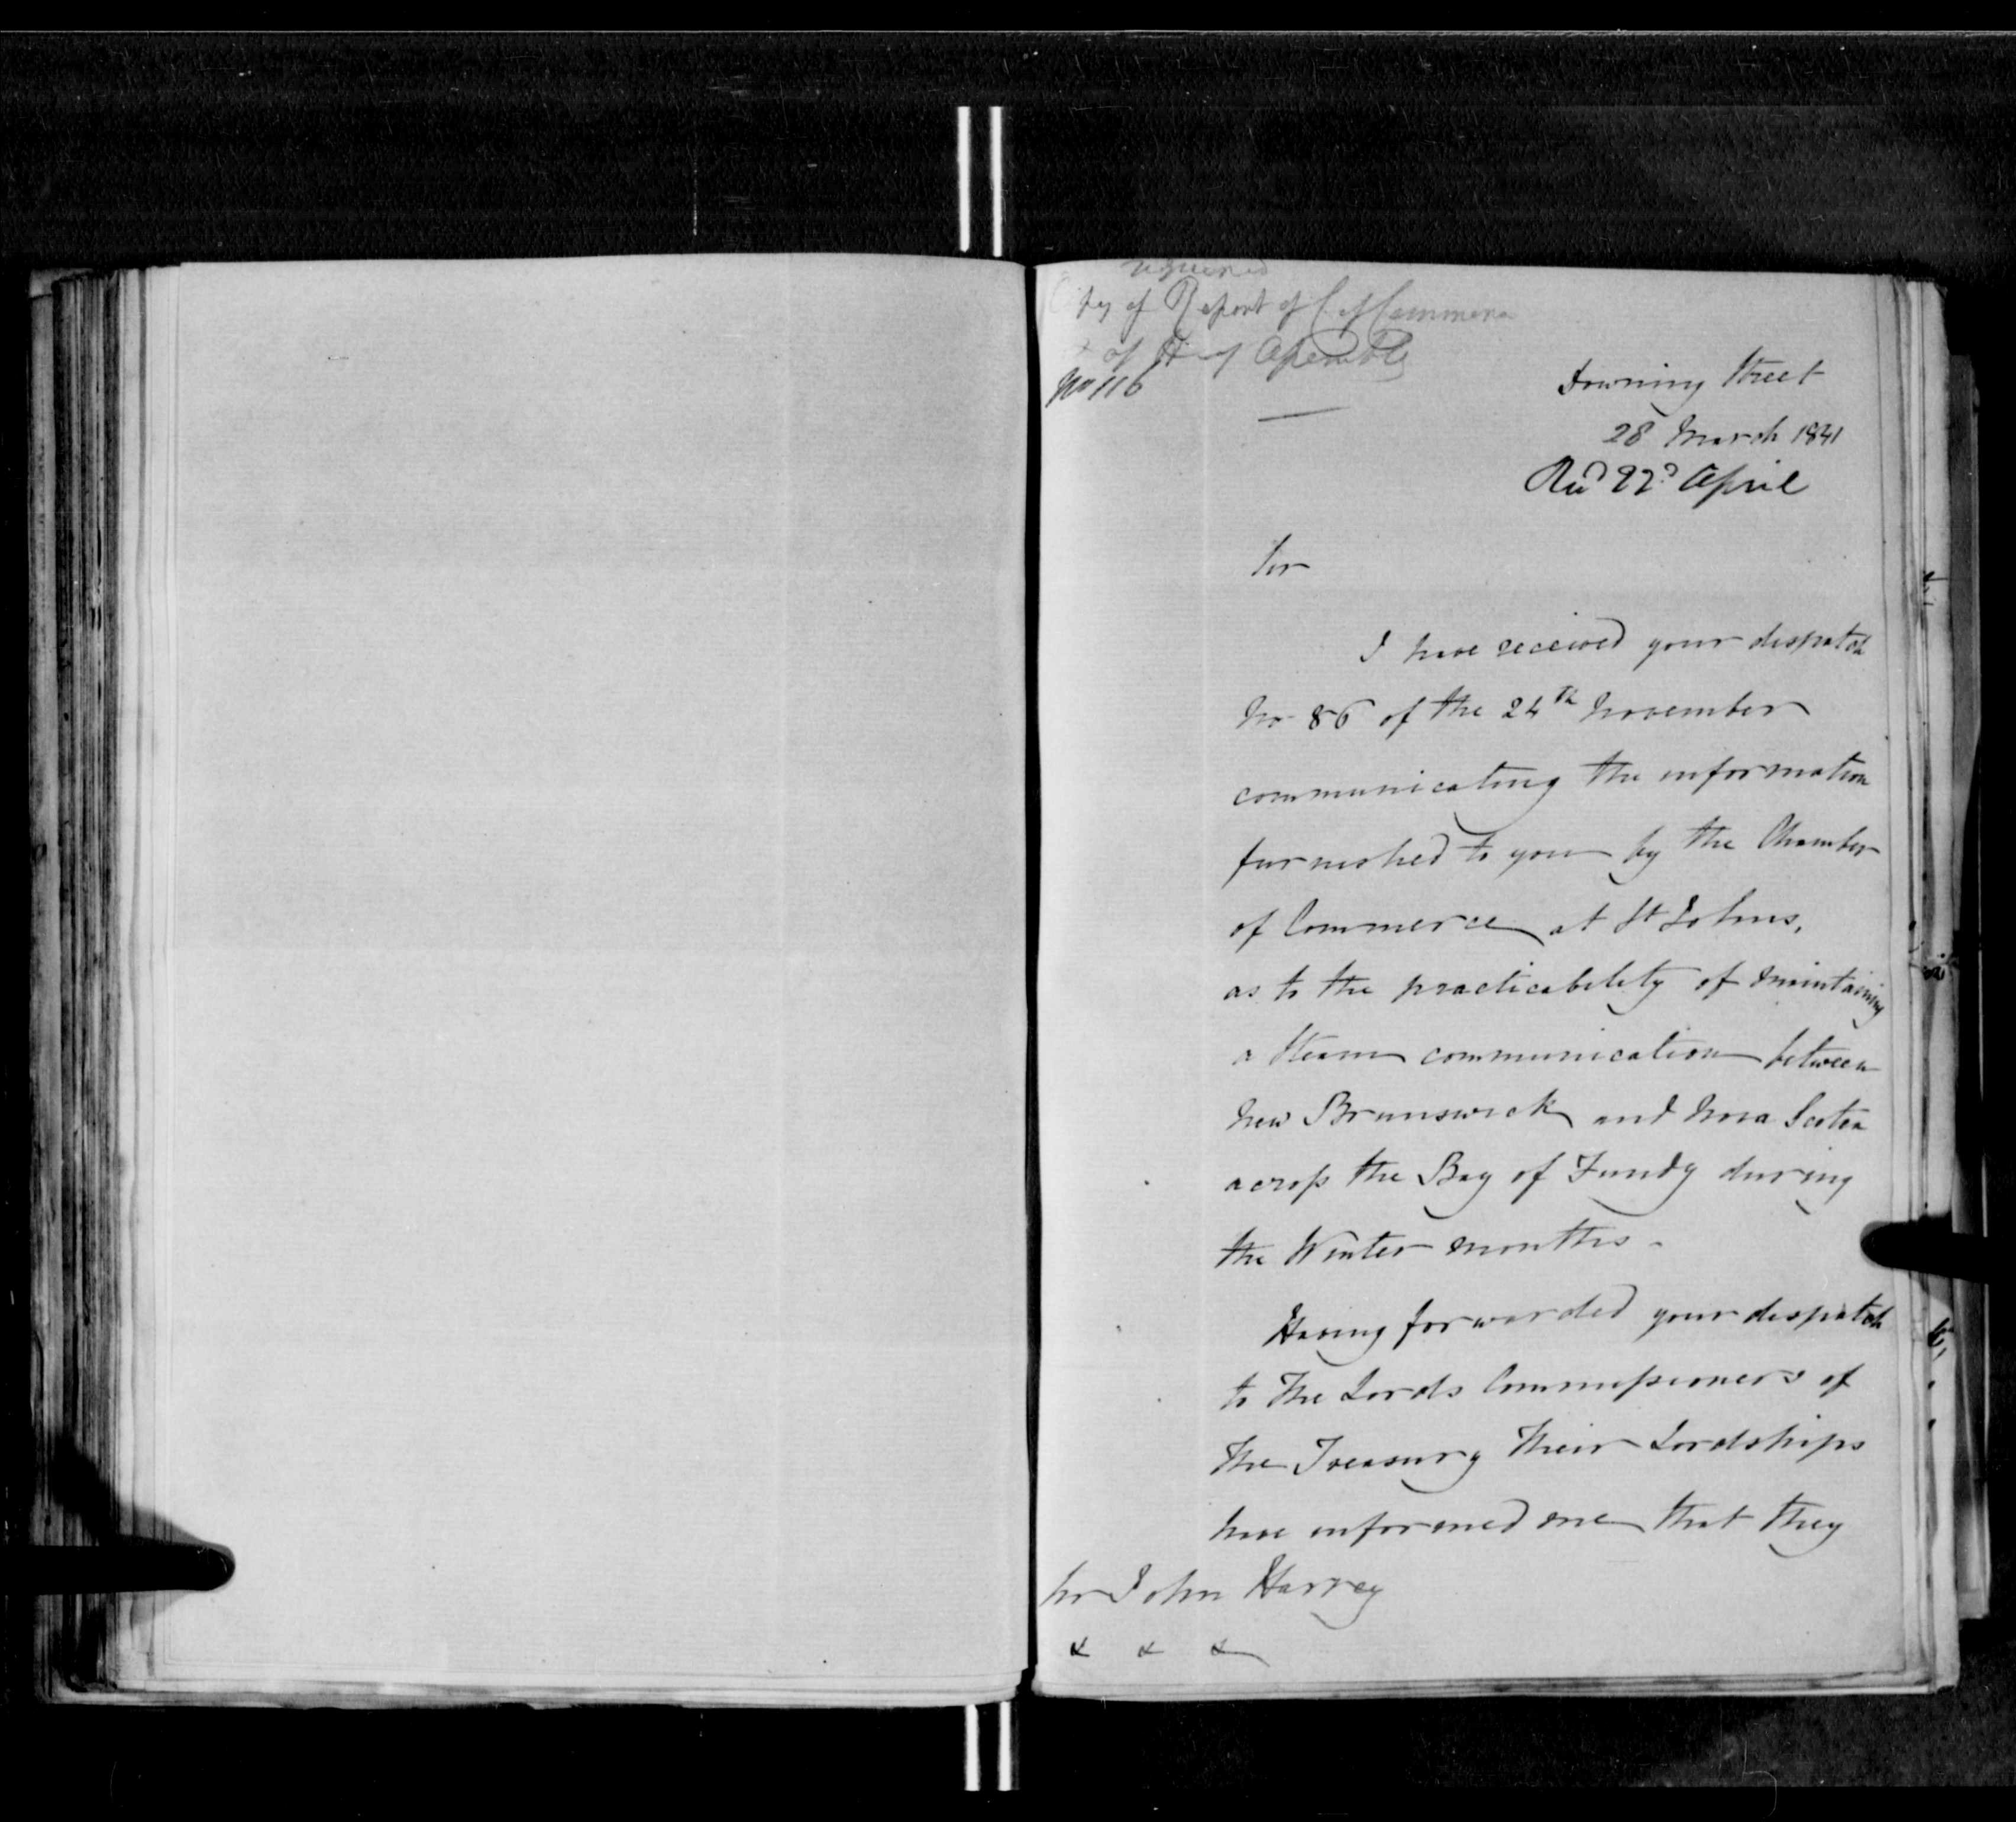 required
Copy of Report of C. of Commerce
& of H. of Assembly
No 116
Downing Street
28 March 1841
Recd 22d April
Sir
I have received your dispatch
No 86 of the 24th November
communicating the information
furnished to you by the Chamber
of Commerce at St Johns,
as to the practicability of maintaining
a Steam communication between
New Brunswick and Nova Scotia
across the Bay of Fundy during
the Winter months -
Having forwarded your dispatch
to The Lords Commissioners of
The Treasury Their Lordships
have informed me that they
Sir John Harvey
& & &